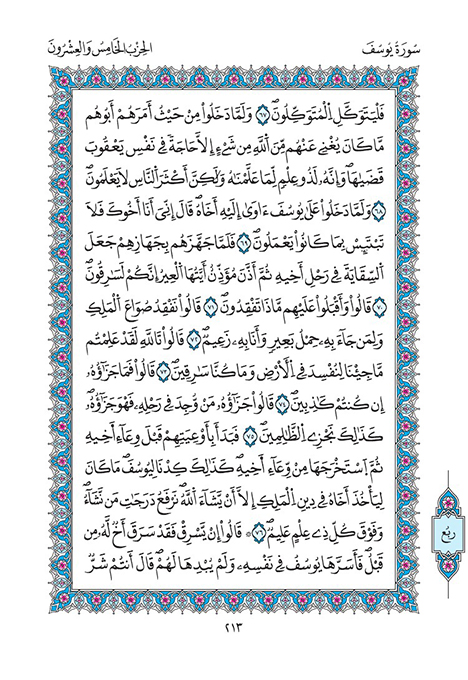 سُورَةُ يُوسُفَ
الحِزْبُ الخَامِسُ وَالعِشْرُونَ
فَلْيَتَوَكَّلِ اِلْمُتَوَكِّلُونَۖ ٦٧ وَلَمَّا دَخَلُواْ مِنْ حَيْثُ أَمَرَهُمْ أَبُوهُم
مَّا كَانَ يُغْنِے عَنْهُم مِّنَ اَللَّهِ مِن شَےْءٍ اِلَّا حَاجَةٗ فِے نَفْسِ يَعْقُوبَ
قَضَىٰهَاۖ وَإِنَّهُۥ لَذُو عِلْمٖ لِّمَا عَلَّمْنَٰهُۖ وَلَٰكِنَّ أَكْثَرَ اَلنَّاسِ لَا يَعْلَمُونَۖ
٦٨ وَلَمَّا دَخَلُواْ عَلَىٰ يُوسُفَ ءَاو۪ىٰٓ إِلَيْهِ أَخَاهُۖ قَالَ إِنِّيَ أَنَا أَخُوكَ فَلَا
تَبْتَئِسْ بِمَا كَانُواْ يَعْمَلُونَۖ ٦٩ فَلَمَّا جَهَّزَهُم بِجَهَازِهِمْ جَعَلَ
اَلسِّقَايَةَ فِے رَحْلِ أَخِيهِ ثُمَّ أَذَّنَ مُؤَذِّنٌ أَيَّتُهَا اَلْعِيرُ إِنَّكُمْ لَسَٰرِقُونَۖ
٧٠ قَالُواْ وَأَقْبَلُواْ عَلَيْهِم مَّاذَا تَفْقِدُونَۖ ٧١ قَالُواْ نَفْقِدُ صُوَاعَ اَلْمَلِكِ
وَلِمَن جَآءَ بِهِۦ حِمْلُ بَعِيرٖ وَأَنَا بِهِۦ زَعِيمٞۖ ٧٢ قَالُواْ تَاللَّهِ لَقَدْ عَلِمْتُم
مَّا جِئْنَا لِنُفْسِدَ فِے اِلْأَرْضِ وَمَا كُنَّا سَٰرِقِينَۖ ٧٣ قَالُواْ فَمَا جَزَٰٓؤُهُۥٓ
إِن كُنتُمْ كَٰذِبِينَۖ ٧٤ قَالُواْ جَزَٰٓؤُهُۥ مَنْ وُجِدَ فِے رَحْلِهِۦ فَهُوَ جَزَٰٓؤُهُۥۖ
كَذَٰلِكَ نَجْزِے اِلظَّٰلِمِينَۖ ٧٥ فَبَدَأَ بِأَوْعِيَتِهِمْ قَبْلَ وِعَآءِ أَخِيهِ
ثُمَّ اَسْتَخْرَجَهَا مِنْ وِعَآءِ اَخِيهِۖ كَذَٰلِكَ كِدْنَا لِيُوسُفَۖ مَا كَانَ
لِيَأْخُذَ أَخَاهُ فِے دِينِ اِلْمَلِكِ إِلَّا أَنْ يَّشَآءَ اَللَّهُۖ نَرْفَعُ دَرَجَٰتِ مَن نَّشَآءُۖ
وَفَوْقَ كُلِّ ذِے عِلْمٍ عَلِيمٞۖ ٧٦ ۞ قَالُواْ إِنْ يَّسْرِقْ فَقَدْ سَرَقَ أَخٞ لَّهُۥ مِن
قَبْلُۖ فَأَسَرَّهَا يُوسُفُ فِے نَفْسِهِۦ وَلَمْ يُبْدِهَا لَهُمْۖ قَالَ أَنتُمْ شَرّٞ
ربع
٢١٣